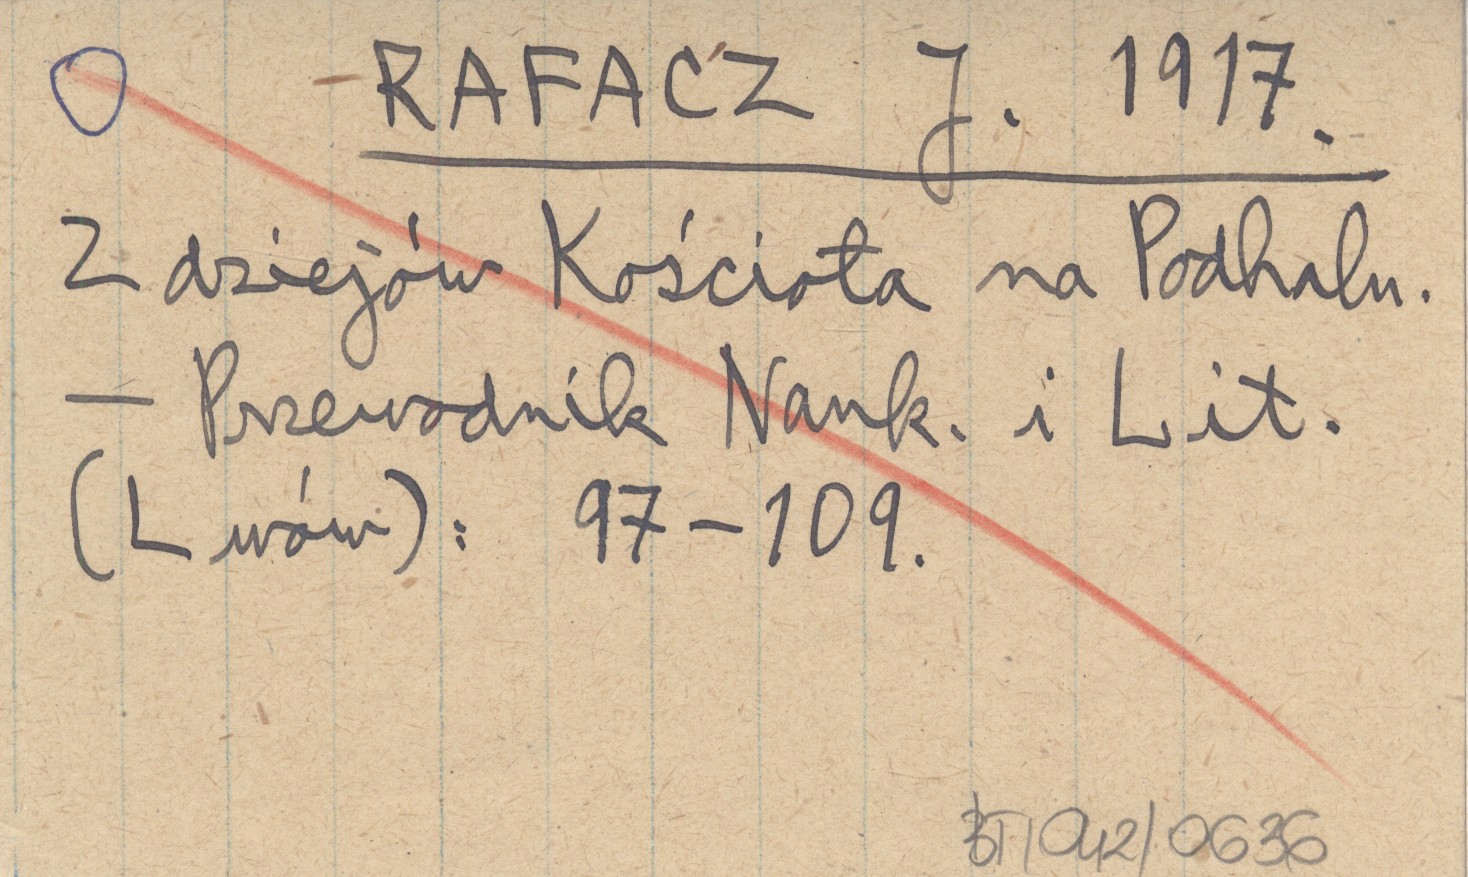 RAFACZ J. 1917.
Z dziejów Kościoła na Podhalu.
— Przewodnik Nauk. i Lit.
(Lwów): 97-109.
BT/042/0636